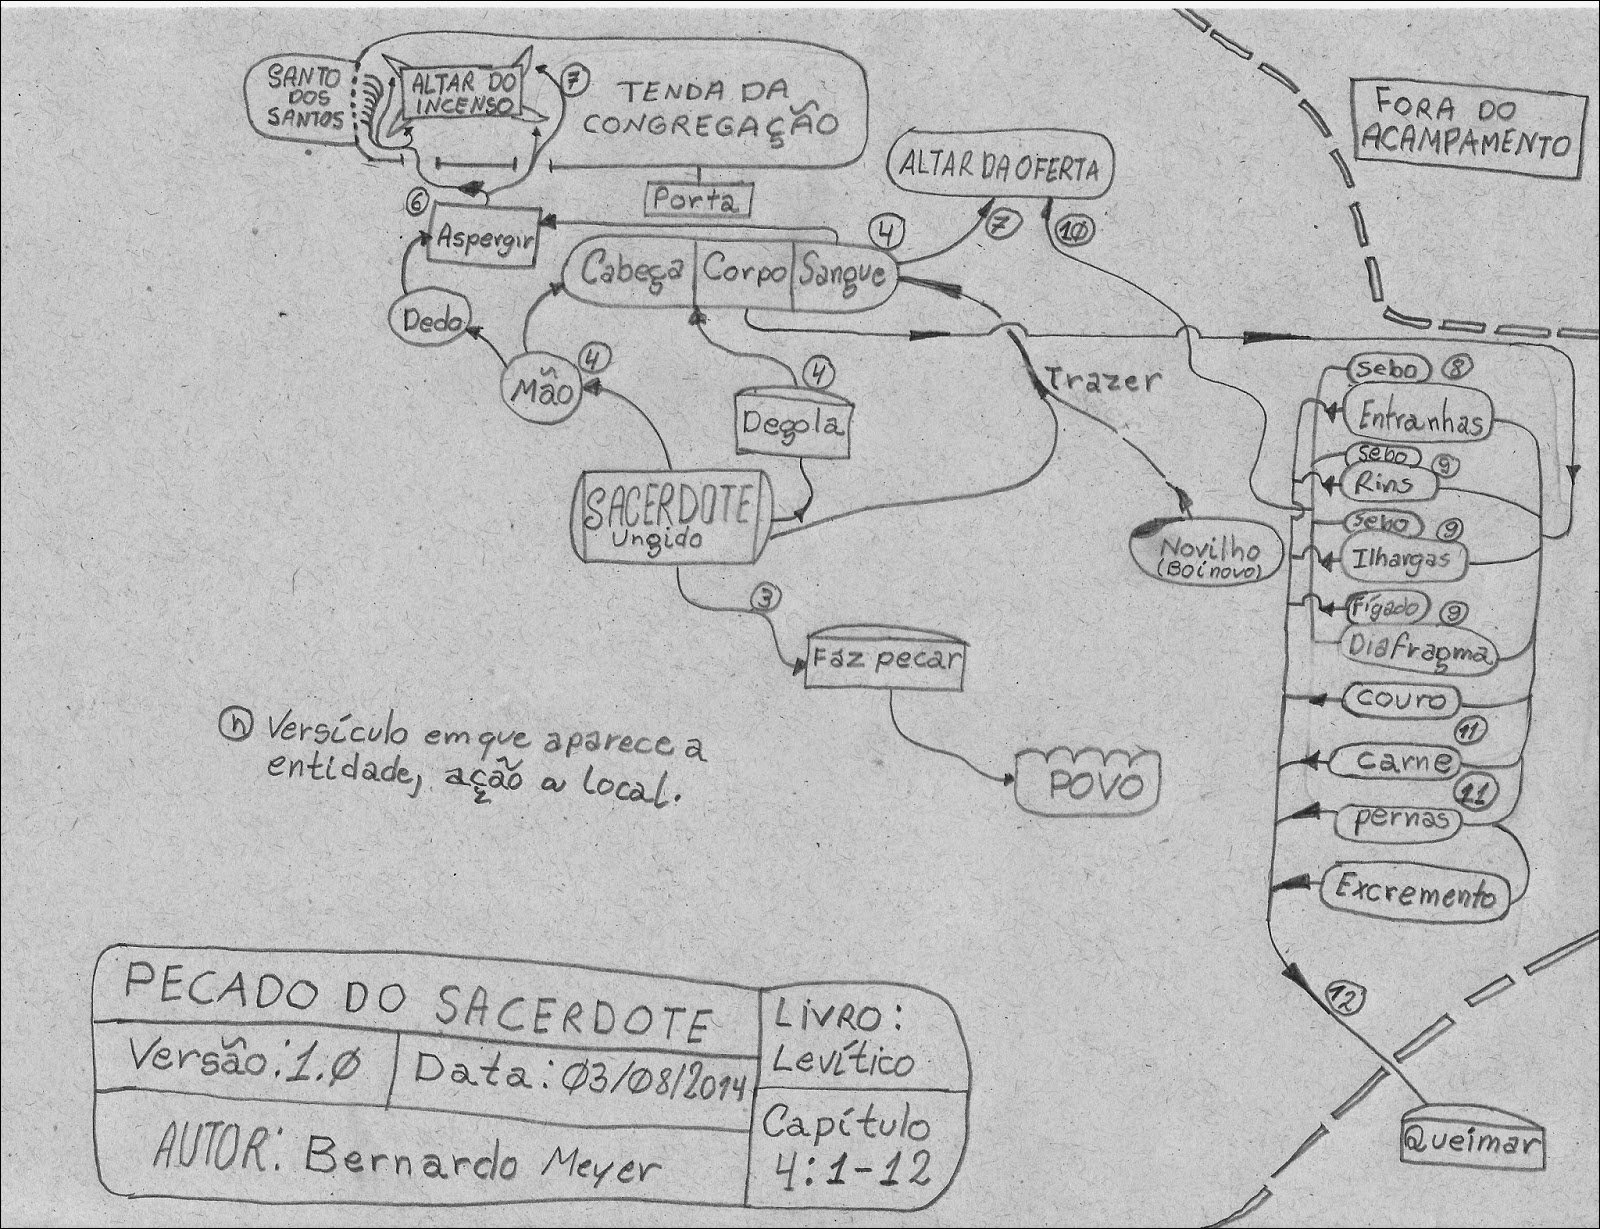 SANTO
DOS
SANTOS
ALTAR DO
INCENSO
7
TENDA DA
CONGREGAÇÃO
Porta
ALTAR DA OFERTA
FORA DO
ACAMPAMENTO
6
Aspergir
4
7
10
Cabeça
Corpo
Sangue
Dedo
Mão
4
4
Degola
Trazer
SACERDOTE
Ungido
Novilho
(Boi novo)
3
Faz pecar
POVO
sebo
8
Entranhas
sebo
9
Rins
sebo
9
Ilhargas
Fígado
9
Diafragma
couro
11
carne
11
pernas
Excremento
12
Queimar
n Versículo em que aparece a
entidade, ação e local.
PECADO DO SACERDOTE
Versão: 1.0
Data: 03/08/2014
AUTOR: Bernardo Meyer
LIVRO:
Levítico
Capítulo
4:1-12